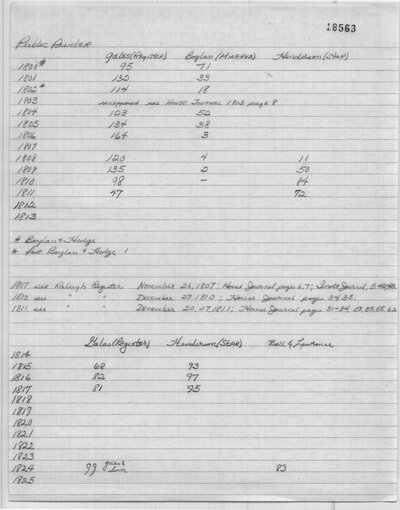 18563
Public Printer
Gales (Register) Boylan (Minerva) Henderson (Star)
1800# 95 71
1801 132 33
1802* 114 18
1803 unopposed see House Journal 1803 page 8
1804 123 52
1805 134 38
1806 164 3
1807
1808 120 4 11
1809 135 2 50
1810 98 - 84
1811 47 72
1812
1813
# Boylan & Hodge
* for Boylan & Hodge 1
1807 see Raleigh Register November 26, 1807; House Journal pages 6, 7; Senate Journal,
1810 see " " December 27, 1810; House Journal pages 34, 35.
1811 see " " December 20, 27, 1811; House Journal pages 31-34, 53, 55, 62
Gales (Register) Henderson (Star) Bell & Lawrence
1814
1815 68 93
1816 82 97
1817 81 95
1818
1819
1820
1821
1822
1823
1824 99 gales & son 83
1825